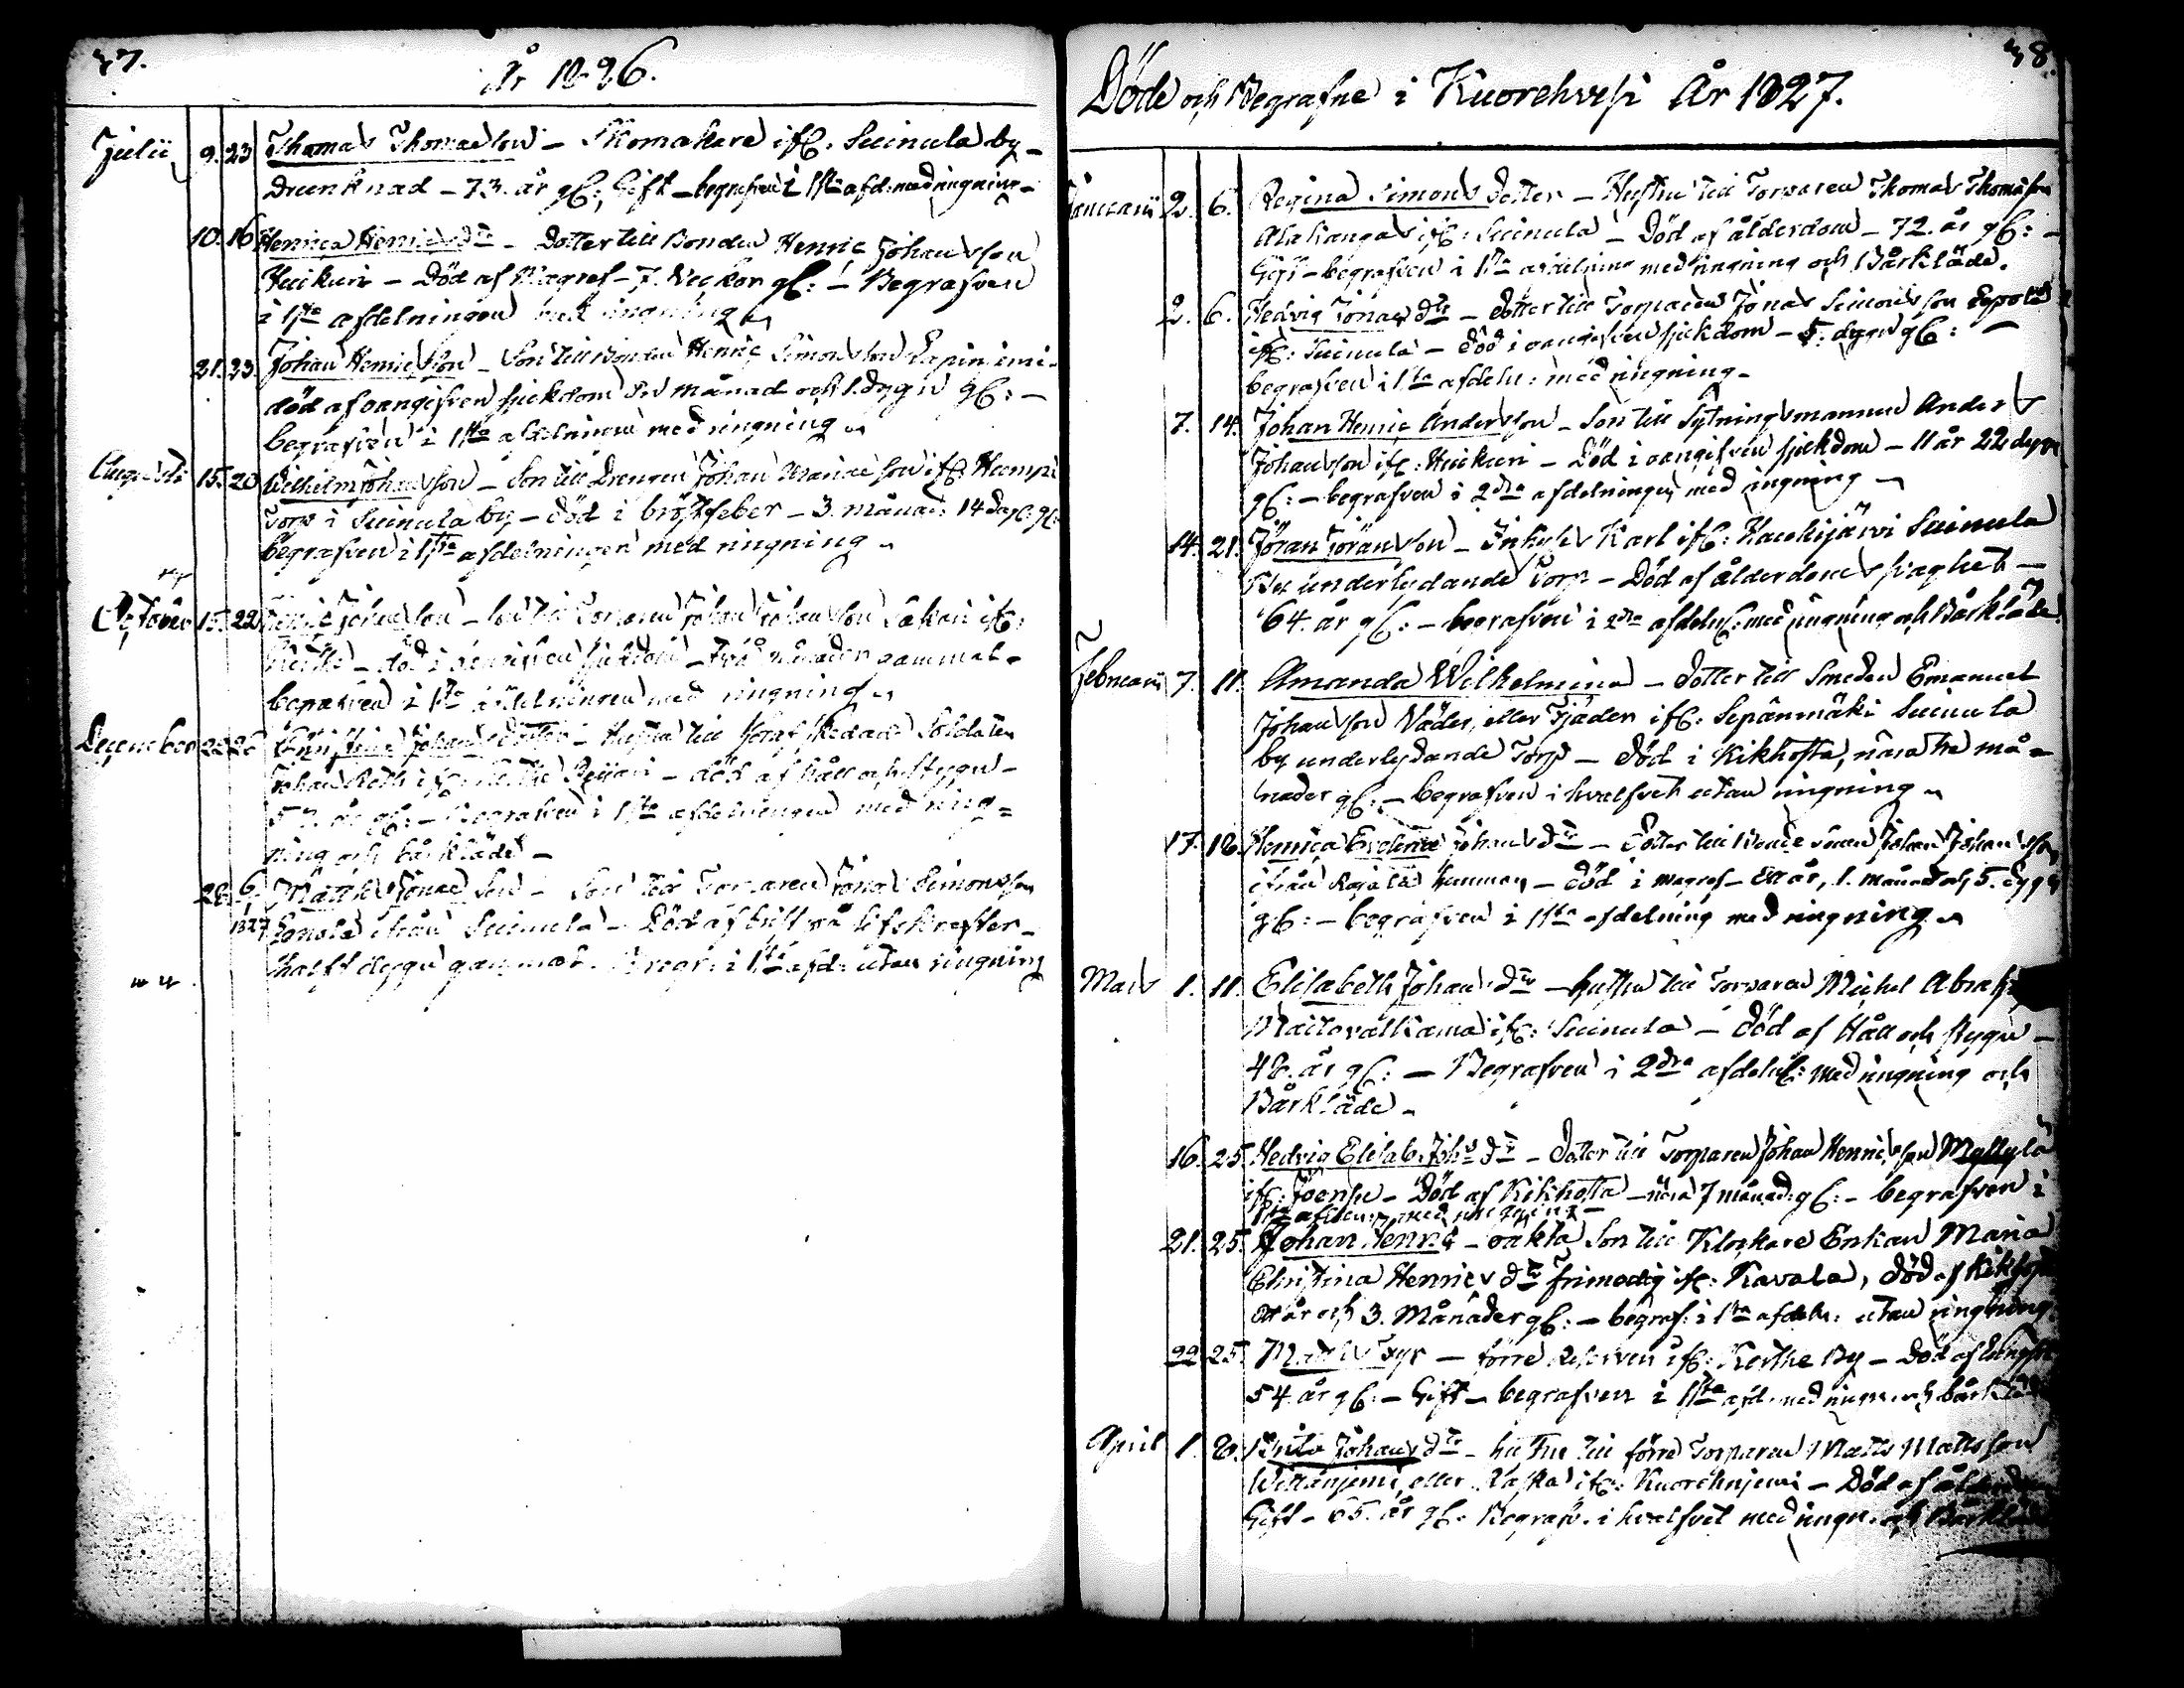 37.
År 1826.
Julii 9. 23 Thomas Thomasson – Skomakare ifr: Suinula by –
drunknad – 73. år gl:, Gift – begrafven i 1sta afd: med ringning –
10. 16 Henrica Henricsdtr – Dotter till Bonden Henric Johansson
Huikuri – Död af Magref – 7. Veckor gl: – Begrafven
i 1sta afdelningen med ringning
21. 23. Johan Henricsson – Son till Bonden Henric Simonsson Lapinniemi
död af oangifven sjukdom månad och 1. dygn gl: –
begrafven i 1sta afdelningen med ringning
Augusti 15. 20 Wilhelm Johansson – Son till Drengen Johan son ifr: Humpi
Torp i Suinula by – död i bröstfeber – 3. månad: 14 dag: gl:
begrafven i 1sta afdelningen med ringning
October 15. 22 Johansson – Son till Torparen Johan Johansson ifr:
– död i oangifven sjukdom – två månader gammal –
begrafven i 1sta afdelningen med ringning
December 22 26 Christina Johansdotter – Hustru till afskedade Soldaten
Johan ifr: – död af håll och stygn –
år gl: – Begrafven i 1sta afdelningen med ring=
ning och bårkläde –
28. 6. Matts Jonasson – Son till Torparen Jonas Simonsson
1827 ifrån Suinula – Död af brist på lifskrafter –
halft dygn gammal. Begr: i 1sta afd: utan ringning
38.
Döde och Begrafne i Kuorehvesi År 1827.
Januarii 2. 6. Regina Simons Dotter – Hustru till Torparen Thomas Thomasson
Alakangas ifr: Suinula – Död af ålderdom – 72. år gl: –
Gift – begrafven i 1sta afdelning med ringning och Bårkläde.
2. 6. Hedvig Jonasdtr – dotter till Torparen Jonas Simonsson
ifr: Suinula – död i oangifven sjukdom – 5. dygn gl: –
begrafven i 1sta afdeln: med ringning –
7. 14. Johan Henric Andersson – Son till Sytningsmannen Anders
Johansson ifr: Huikuri – Död i oangifven sjukdom – 11 år 22 dygn
gl: – begrafven i 2dra afdelningen med ringning
14. 21. Jöran Jöransson – Inhyses Karl ifr: Haukijärvi Suinula
By underlydande Torp – Död af ålderdoms svaghet –
64. år gl: – begrafven i 2dra afdeln: med ringning och Bårkläde
Februarii 7. 11. Amanda Wilhelmina – dotter till Smeden Emanuel
Johansson Väder, eller Fjäder ifr: Sepänmäki Suinula
by underlydande Torp – död i Kikhosta, nära tre må=
nader gl: – begrafven i hvalfvet utan ringning
17. 18. Henrica Evelina Johansdtr – Dotter till Bondesonen Johan Johansson
ifrån hemman – död i magref – Ett år, 1. månad och 5. dygn
gl: – begrafven i 1sta afdelning med ringning
Mars 1. 11. Elisabeth Johansdtr – hustru till Torparen Michel
Maitovalkama ifr: Suinula – död af Håll och stygn –
48. år gl: – Begrafven i 2dra afdeln: med ringning och
Bårkläde –
16. 25. Hedvig Elisab: Johs dr – Dotter till Torparen Johan Henricsson Myllylä
ifr: – Död af Kikhosta – nära 7 månad: gl: – begrafven i
1sta afdeln: med ringning –
21. 25. Johan Henric – oäkta Son till Klockare Enkan Maria
Christina Henricsdtr Frimodig ifr: Kavala, död af Kikhosta
Ett år och 3. Månader gl: – begraf: i 1sta afdeln: utan ringning
22 25. Matts – förre Reserven ifr: Kerthe By – Död af
54 år gl: – Gift – begrafven i 1sta afd. med ringn. och bårkläde
April 1. 8. Brita Johansdtr – hustru till förre Torparen Matts Mattsson
eller ifr: Kuorehniemi – Död af
Gift – 65. år gl: Begrafv. i hvalfvet med ringn. och Bårkläde